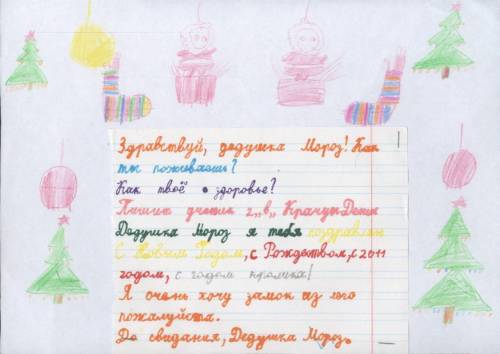 Здравствуй, дедушка Мороз! Как
ты поживаешь?
Как твоё здоровье?
Пишит ученик 2 „в" Крачун Денис
Дедушка Мороз я тебя поздравляю
С Новым Годом, с Рождеством, с 2011
годом, с годом кролика!
Я очень хочу замок из лего
пожалуйста.
До свидания, Дедушка Мороз.